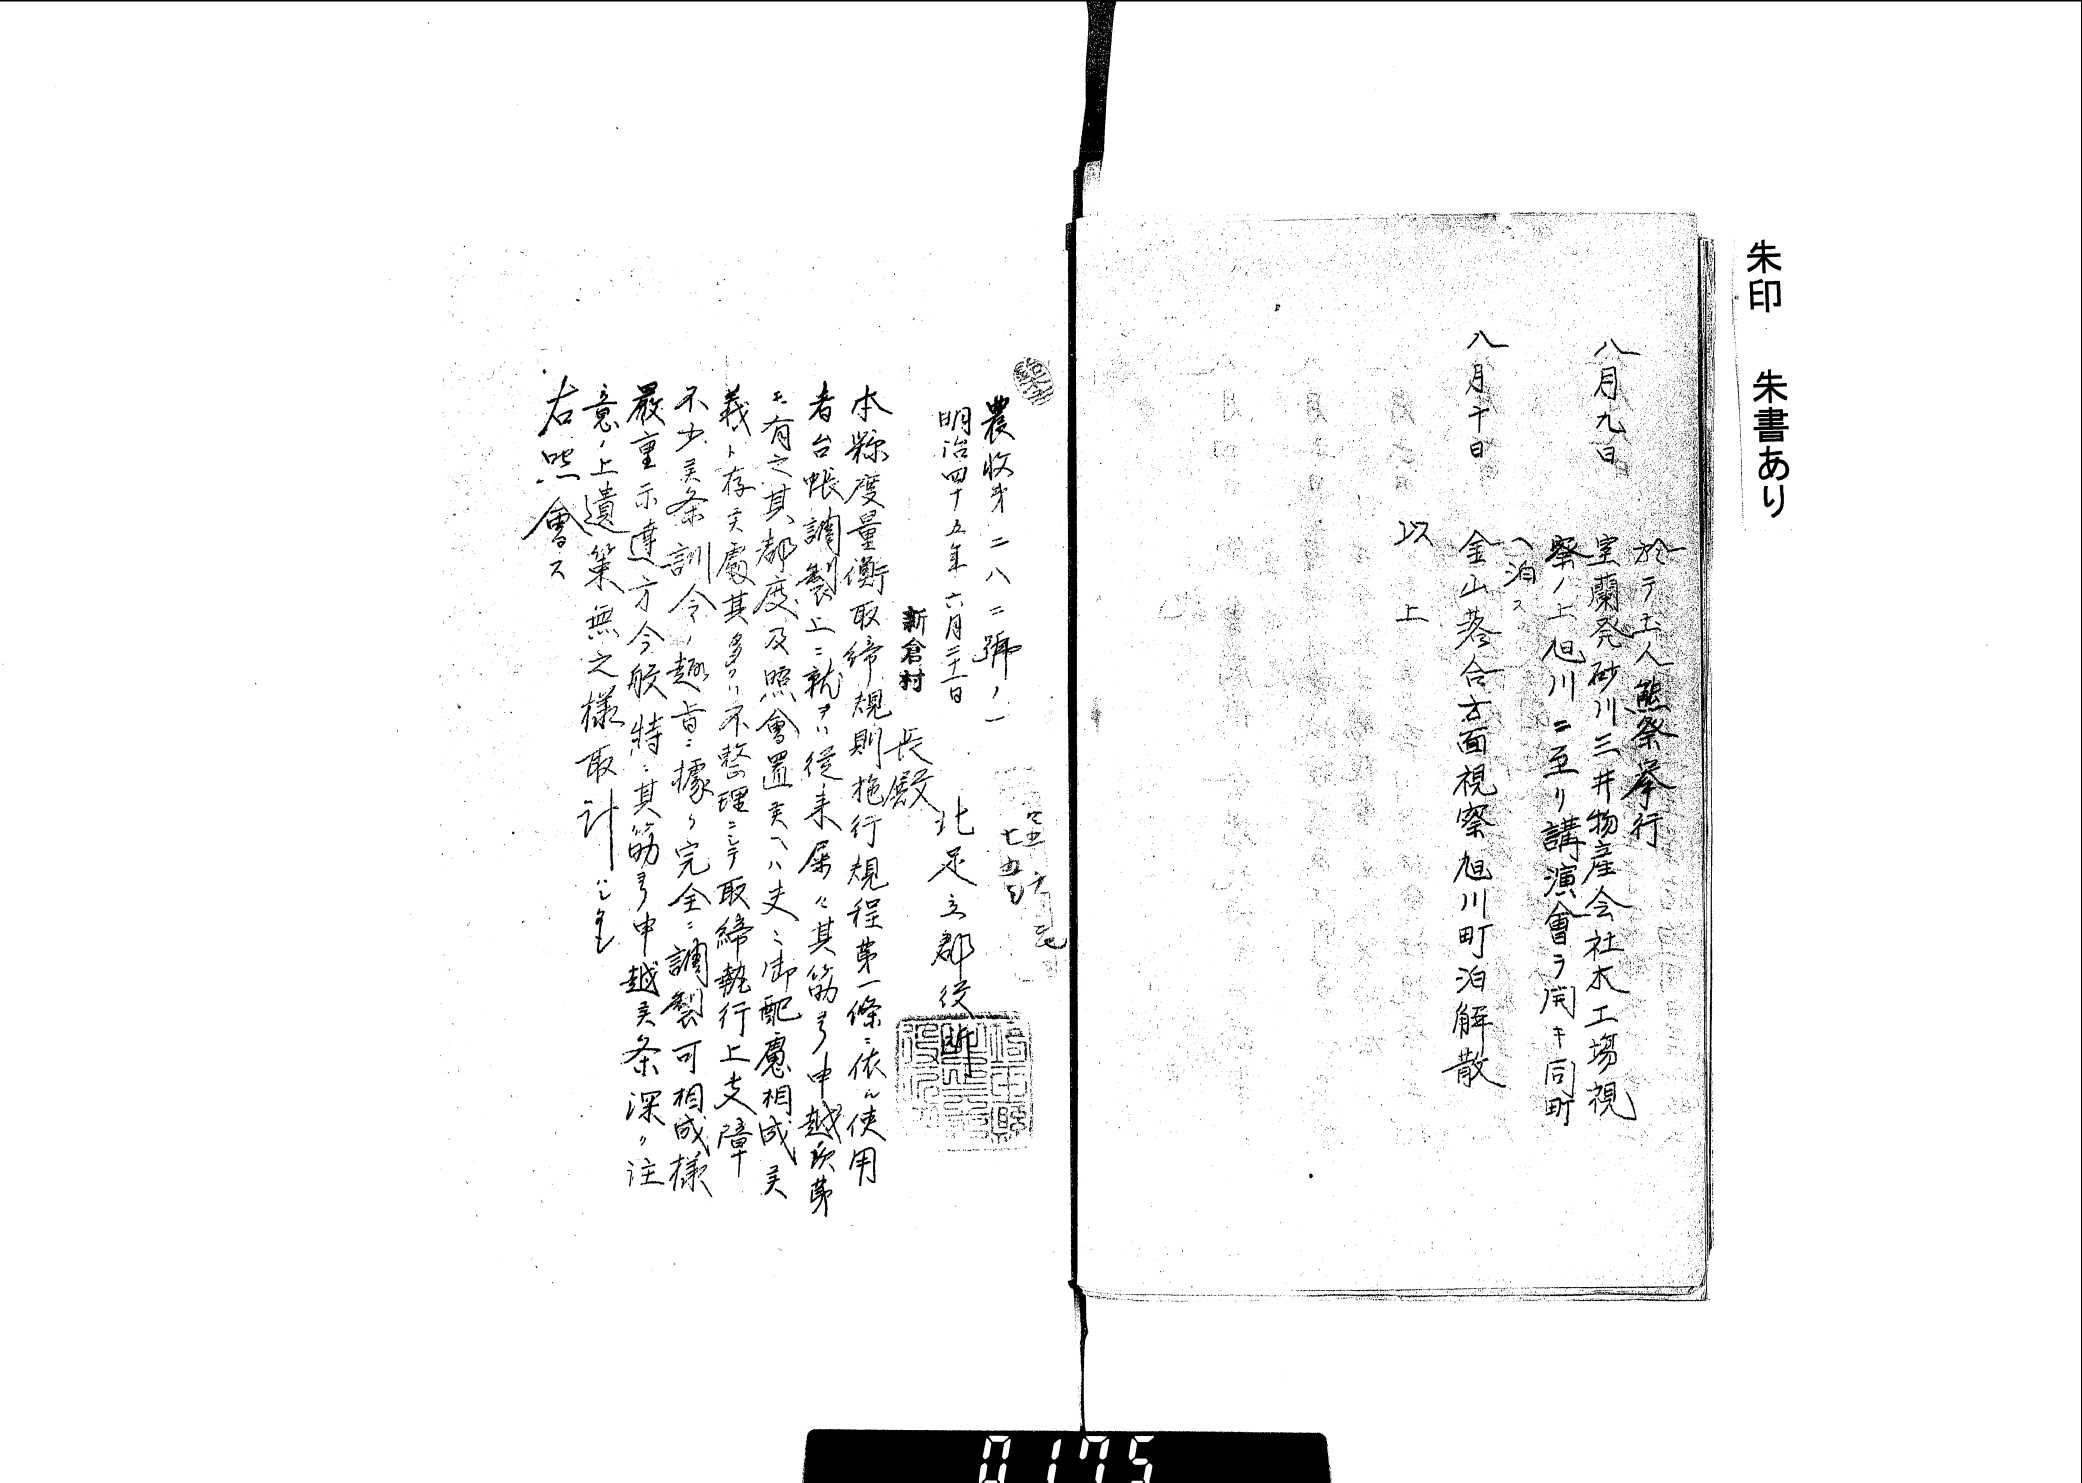 朱印 朱書あり
於テ土人熊祭挙行
八月九日 室蘭発砂川三井物産会社木工場視
察ノ上旭川ニ至リ講演會ヲ開キ同町
ヘ泊ス
八月十日 金山落合方面視察旭川町泊解散
以上
農收第二八二號ノ一
明治四十五年六月二十一日
北足立郡役所
新倉村長殿
本縣度量衡取締規則施行規程第一條ニ依ル使用
者台帳調製上ニ就テハ従来屡々其筋ヨリ申越候
モ有之其都度及照會置候ヘハ夫々御配慮相成候
義ト存候處其多クハ不整理ニシテ取締執行上支障
不少候条訓令ノ趣旨ニ據リ完全ニ調製可相成様
嚴重示達方今般特ニ其筋ヨリ申越候条深ク注
意ノ上遺策無之様取計
右照會ス
0175